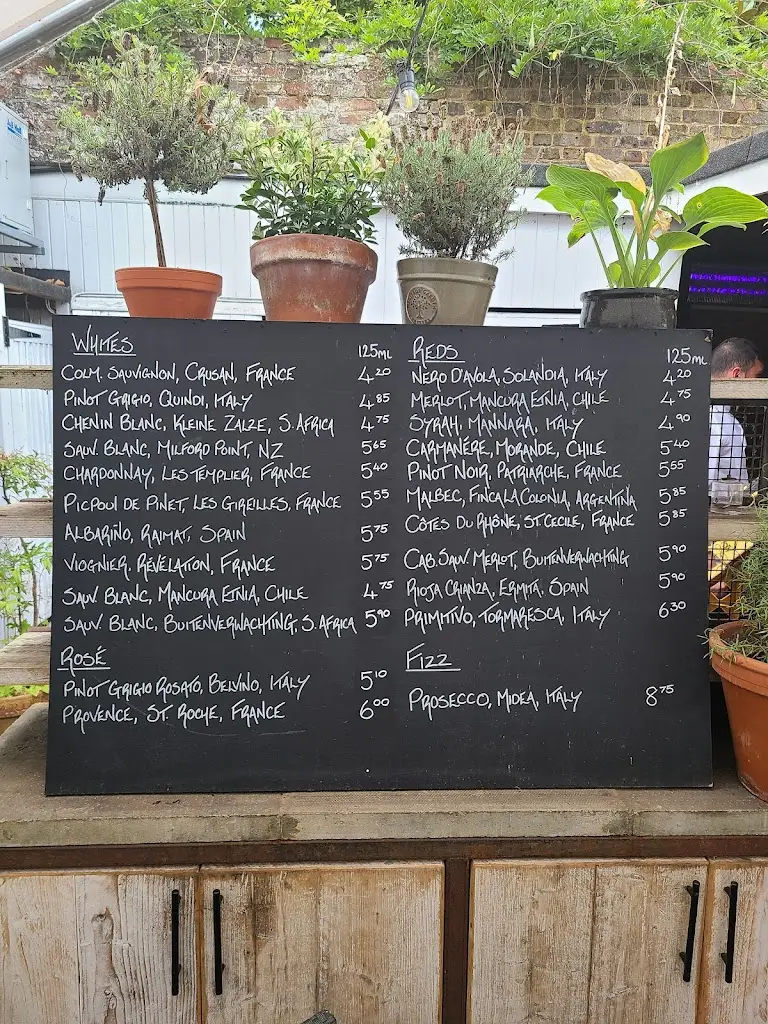 WHITES 125ML
COLM. SAUVIGNON, CRUSAN, FRANCE 4.20
PINOT GRIGIO, QUINDI, ITALY 4.85
CHENIN BLANC, KLEINE ZALZE, S. AFRICA 4.75
SAUV. BLANC, MILFORD POINT, NZ 5.65
CHARDONNAY, LES TEMPLIER, FRANCE 5.40
PICPOUL DE PINET, LES GIREILLES, FRANCE 5.55
ALBARIÑO, RAIMAT, SPAIN 5.75
VIOGNIER, RÉVÉLATION, FRANCE 5.75
SAUV BLANC, MANCURA ETNIA, CHILE 4.75
SAUV. BLANC, BUITENVERWACHTING, S. AFRICA 5.90
ROSÉ
PINOT GRIGIO ROSATO, BELVINO, ITALY 5.10
PROVENCE, ST. ROCHE, FRANCE 6.00
REDS 125ML
NERO D'AVOLA, SOLANDIA, ITALY 4.20
MERLOT, MANCURA ETNIA, CHILE 4.75
SYRAH, MANNARA, ITALY 4.90
CARMANÉRE, MORANDE, CHILE 5.40
PINOT NOIR, PATRIARCHE, FRANCE 5.55
MALBEC, FINCA LA COLONIA, ARGENTINA 5.85
CÔTES DU RHÔNE, ST. CECILE, FRANCE 5.85
CAB. SAUV. MERLOT, BUITENVERWACHTING 5.90
RIOJA CRIANZA, ERMITA, SPAIN 5.90
PRIMITIVO, TORMARESCA, ITALY 6.30
FIZZ
PROSECCO, MIDEA, ITALY 8.75